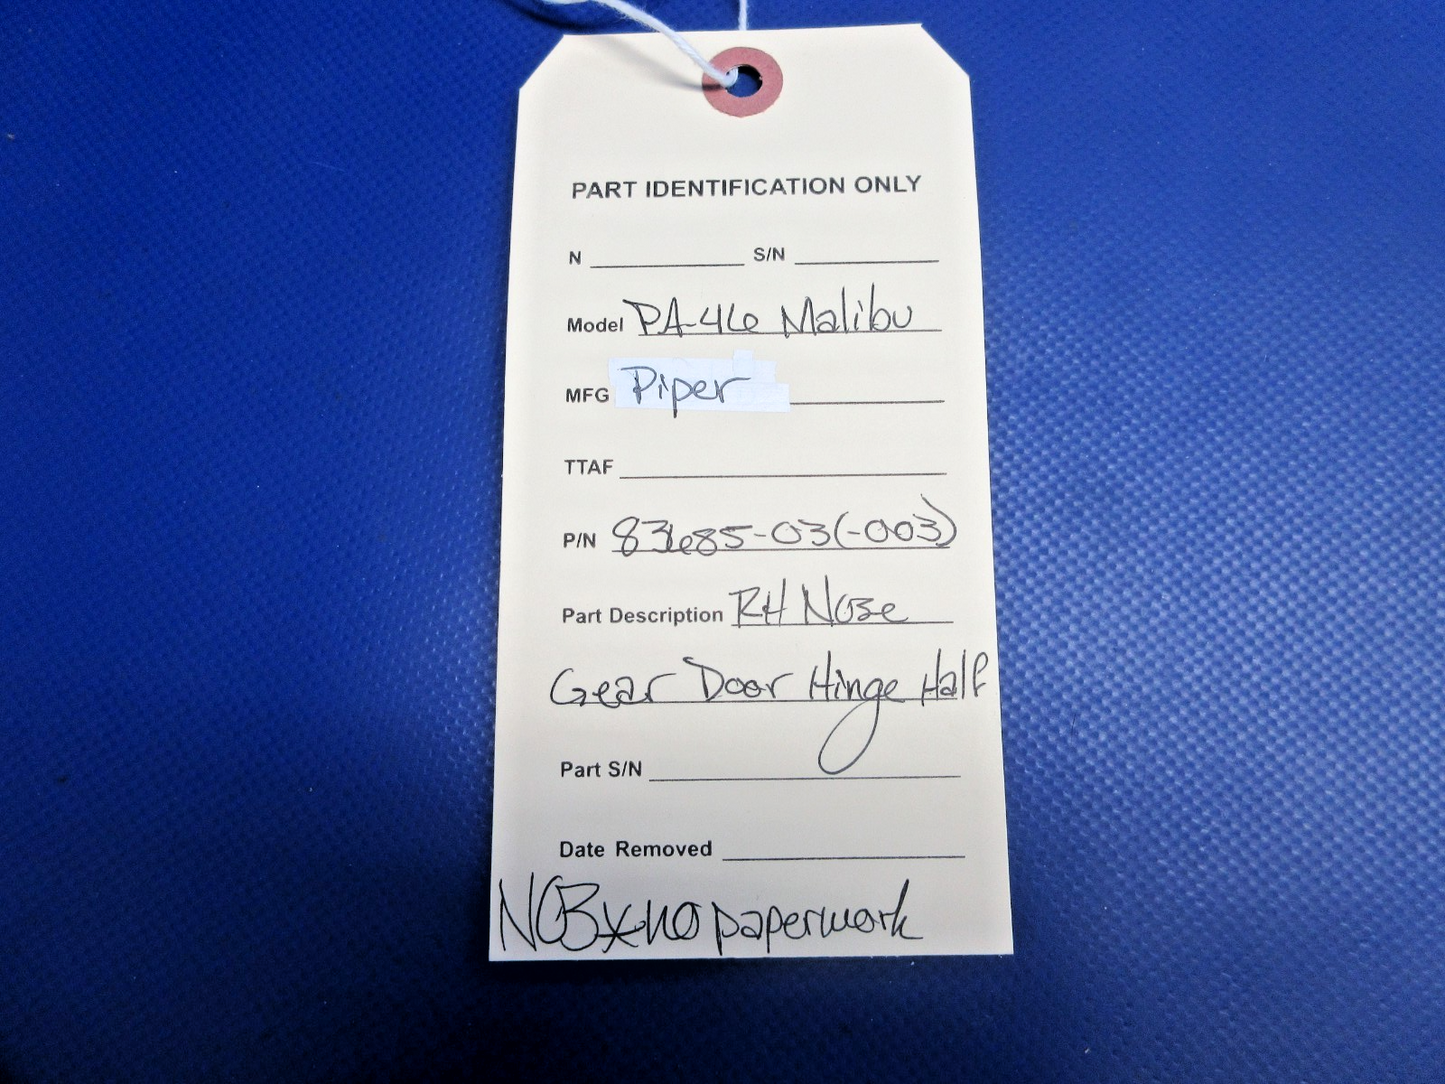 PART IDENTIFICATION ONLY
N S/N
Model PA-46 Malibu
MFG Piper
TTAF
P/N 83685-03(-003)
Part Description RH Nose
Gear Door Hinge Half
Part S/N
Date Removed
NOS no paperwork